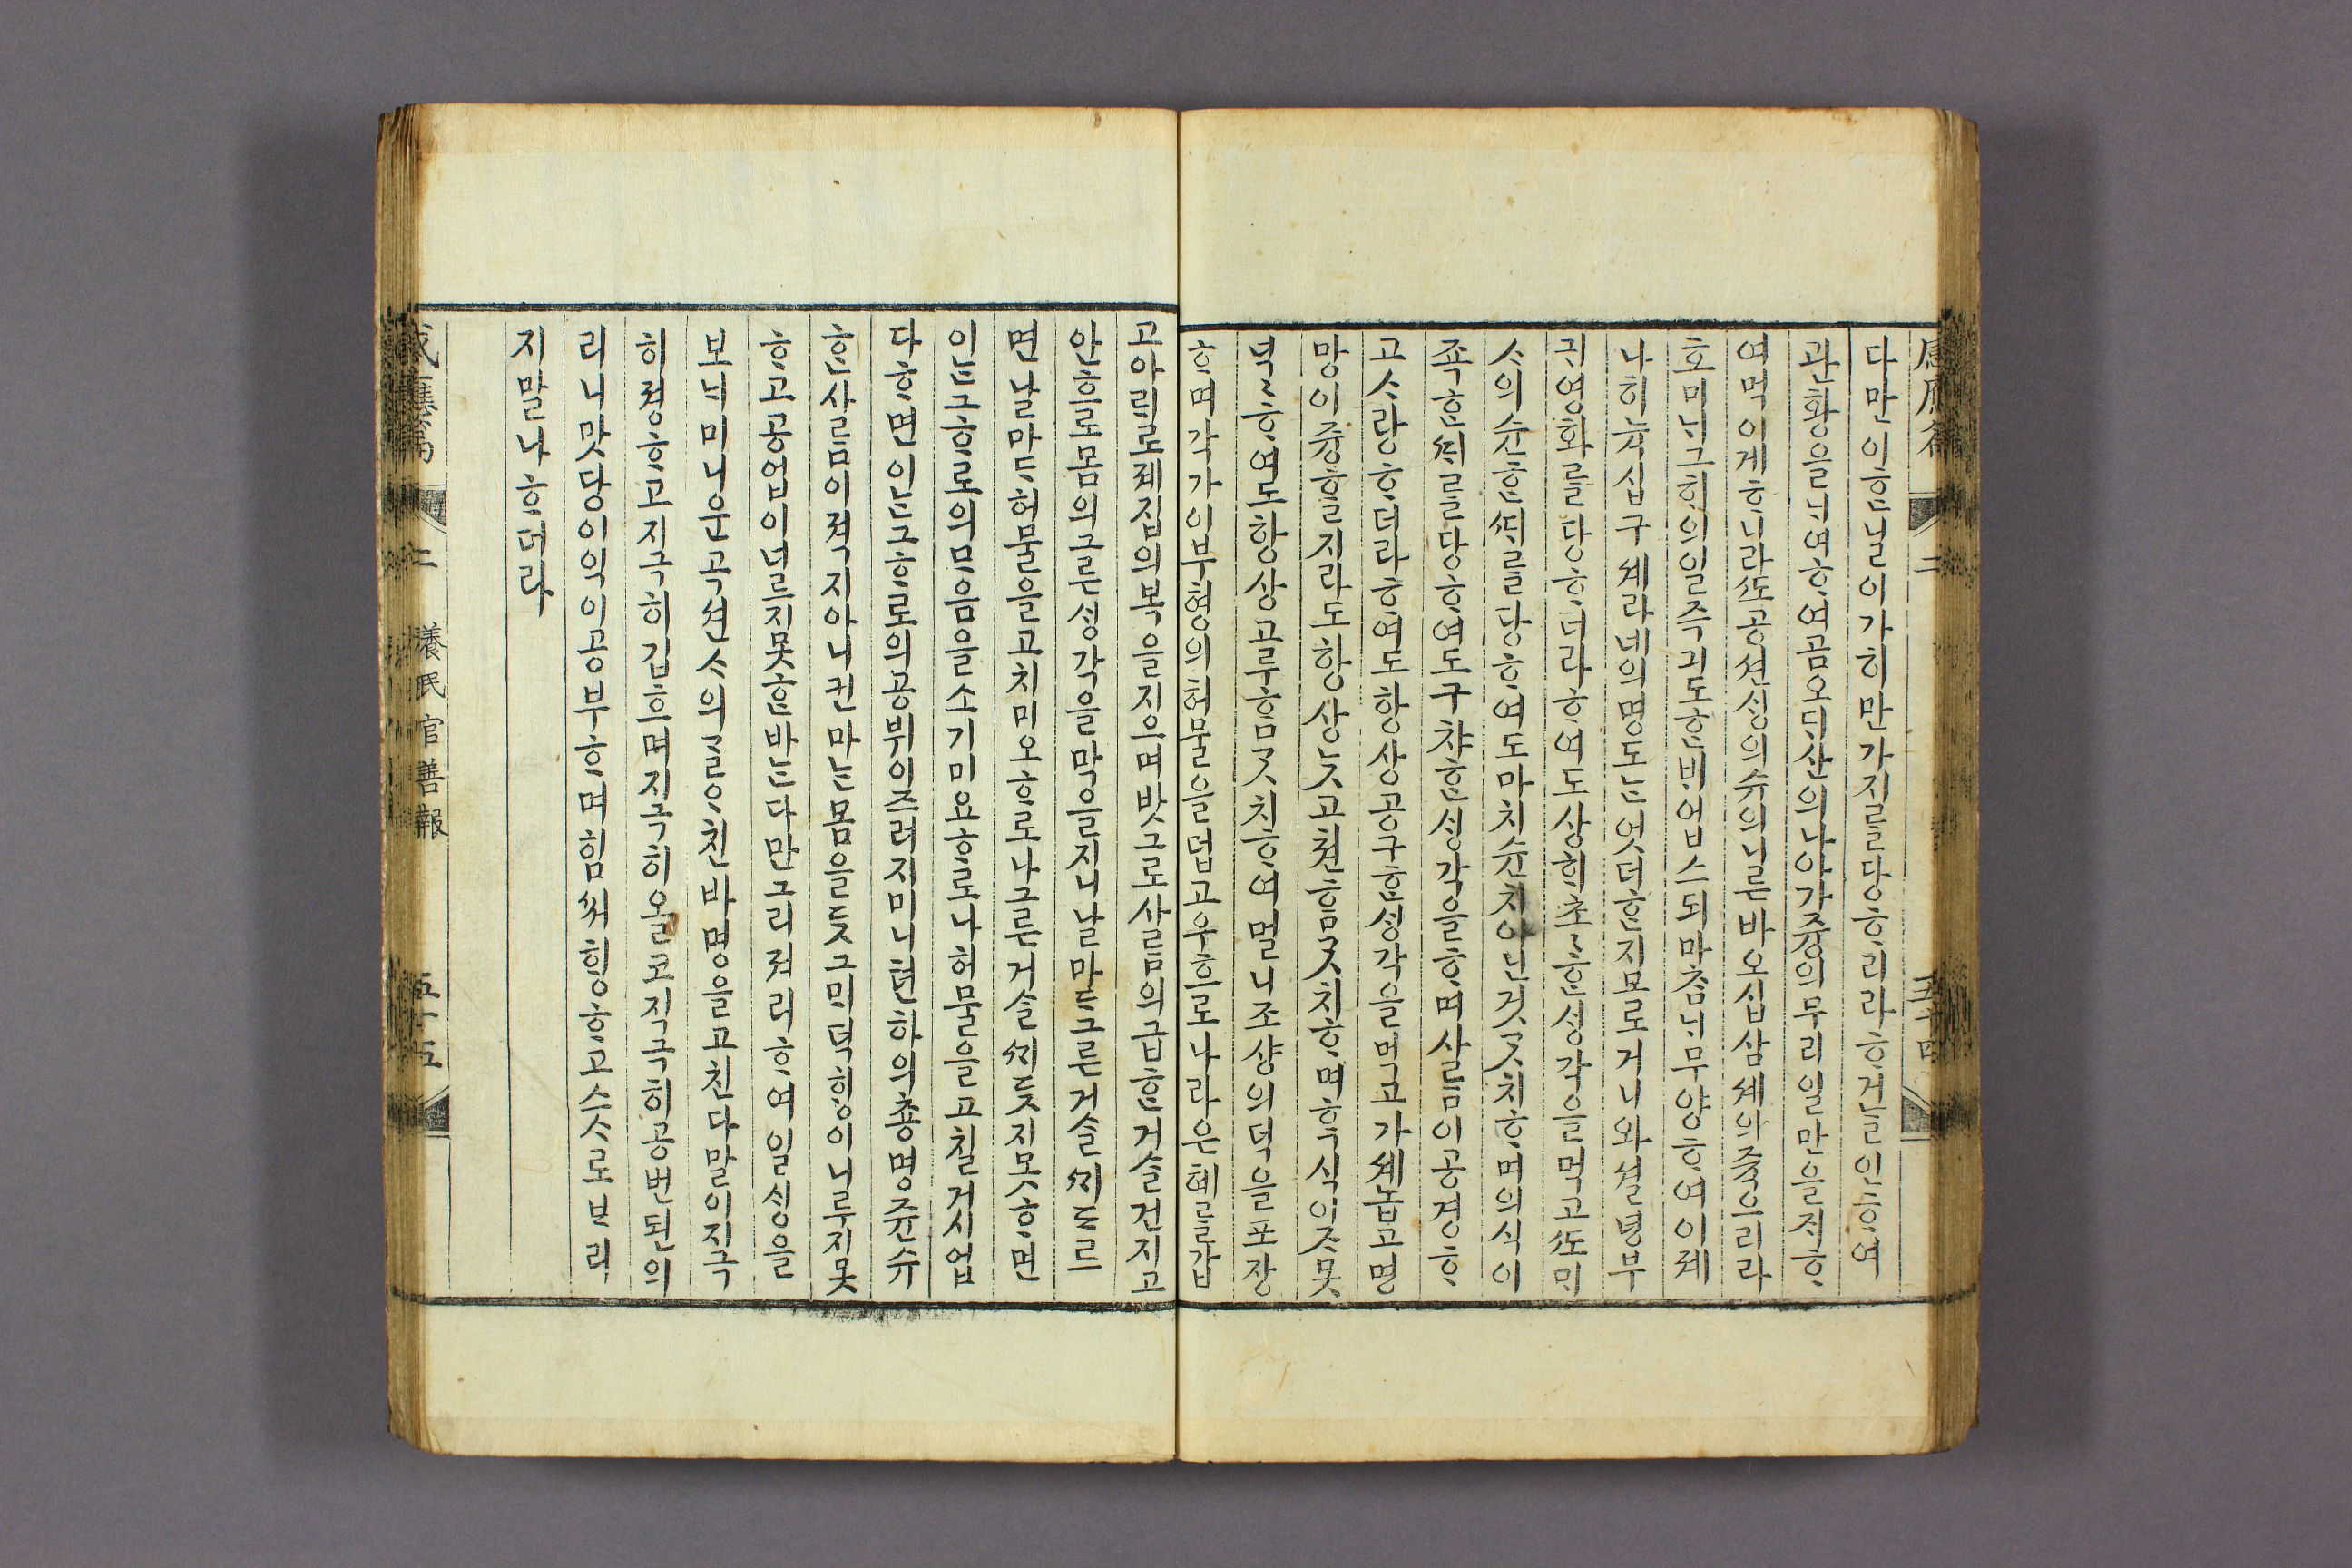 다만 이 ᄒᆞᆫ 닐이 가히 만 가지를 당ᄒᆞ리라 ᄒᆞ거늘 인ᄒᆞ여
관황을 ᄂᆡ여 ᄒᆞ여곰 오ᄃᆡ산의 나아가 즁의 무리 일만을 지ᄒᆞ
여 먹이게 ᄒᆞ니라 ᄯᅩ 공션ᄉᆡᆼ의 슈의 니른바 오십삼셰의 죽으리라
호미 ᄂᆡ 그 ᄒᆡ의 일즉 긔도ᄒᆞᆫ ᄇᆡ 업스되 마ᄎᆞᆷᄂᆡ 무양ᄒᆞ여 이제
나히 뉵십구셰라 네의 명도ᄂᆞᆫ 엇더ᄒᆞᆫ지 모로거니와 셜녕 부
귀영화를 당ᄒᆞ더라 ᄒᆞ여도 상ᄒᆡ 초초ᄒᆞᆫ ᄉᆡᆼ각을 먹고 ᄯᅩ ᄆᆡ
ᄉᆞ의 슌ᄒᆞᆫ ᄯᆡ를 당ᄒᆞ여도 마치 슌치 아닌 것 ᄀᆞᆺ치 ᄒᆞ며 의식이
죡ᄒᆞᆫ ᄯᆡ를 당ᄒᆞ여도 구챠ᄒᆞᆫ ᄉᆡᆼ각을 ᄒᆞ며 사ᄅᆞᆷ이 공경ᄒᆞ
고 ᄉᆞ랑ᄒᆞ더라 ᄒᆞ여도 항상 공구ᄒᆞᆫ ᄉᆡᆼ각을 먹고 가셰 놉고 명
망이 즁ᄒᆞᆯ지라도 항상 ᄂᆞᆺ고 쳔ᄒᆞᆷ ᄀᆞᆺ치 ᄒᆞ며 ᄒᆞᆨ식이 ᄌᆞᆺ못
넉넉ᄒᆞ여도 항상 고루ᄒᆞᆷ ᄀᆞᆺ치 ᄒᆞ여 멀니 조샹의 덕을 포장
ᄒᆞ며 각가이 부형의 허물을 덥고 우흐로 나라 은혜를 갑
고 아ᄅᆡ로 졔 집의 복을 지으며 밧그로 사ᄅᆞᆷ의 급ᄒᆞᆫ 거슬 건지고
안흐로 몸의 그른 ᄉᆡᆼ각을 막을지니 날마ᄃᆞ 그른 거슬 ᄭᆡᄃᆞᄅᆞ
면 날마ᄃᆞ 허물을 고치미오 ᄒᆞ로나 그른 거슬 ᄭᆡᄃᆞᆺ지 못ᄒᆞ면
이ᄂᆞᆫ 그 ᄒᆞ로의 ᄆᆞ음을 소기미요 ᄒᆞ로나 허물을 고칠 거시 업
다 ᄒᆞ면 이ᄂᆞᆫ 그 ᄒᆞ로의 공뷔 이즈러지미니 텬하의 총명쥰슈
ᄒᆞᆫ 사ᄅᆞᆷ이 젹지 아니컨마ᄂᆞᆫ 몸을 ᄃᆞᆺ그미 덕ᄒᆡᆼ이 니루지 못
ᄒᆞ고 공업이 너르지 못ᄒᆞᆫ 바ᄂᆞᆫ 다만 그리져리 ᄒᆞ여 일ᄉᆡᆼ을
보ᄂᆡ미니 운곡션ᄉᆞ의 ᄀᆞᄅᆞ친 바 명을 고친다 말이 지극
히 졍ᄒᆞ고 지극히 깁흐며 지극히 올코 지극히 공변된 의
리니 맛당이 익이 공부ᄒᆞ며 힘ᄡᅥ ᄒᆡᆼᄒᆞ고 스스로 ᄇᆞ리
지 말나 ᄒᆞ더라
感應篇 二 養民官善報 五十五